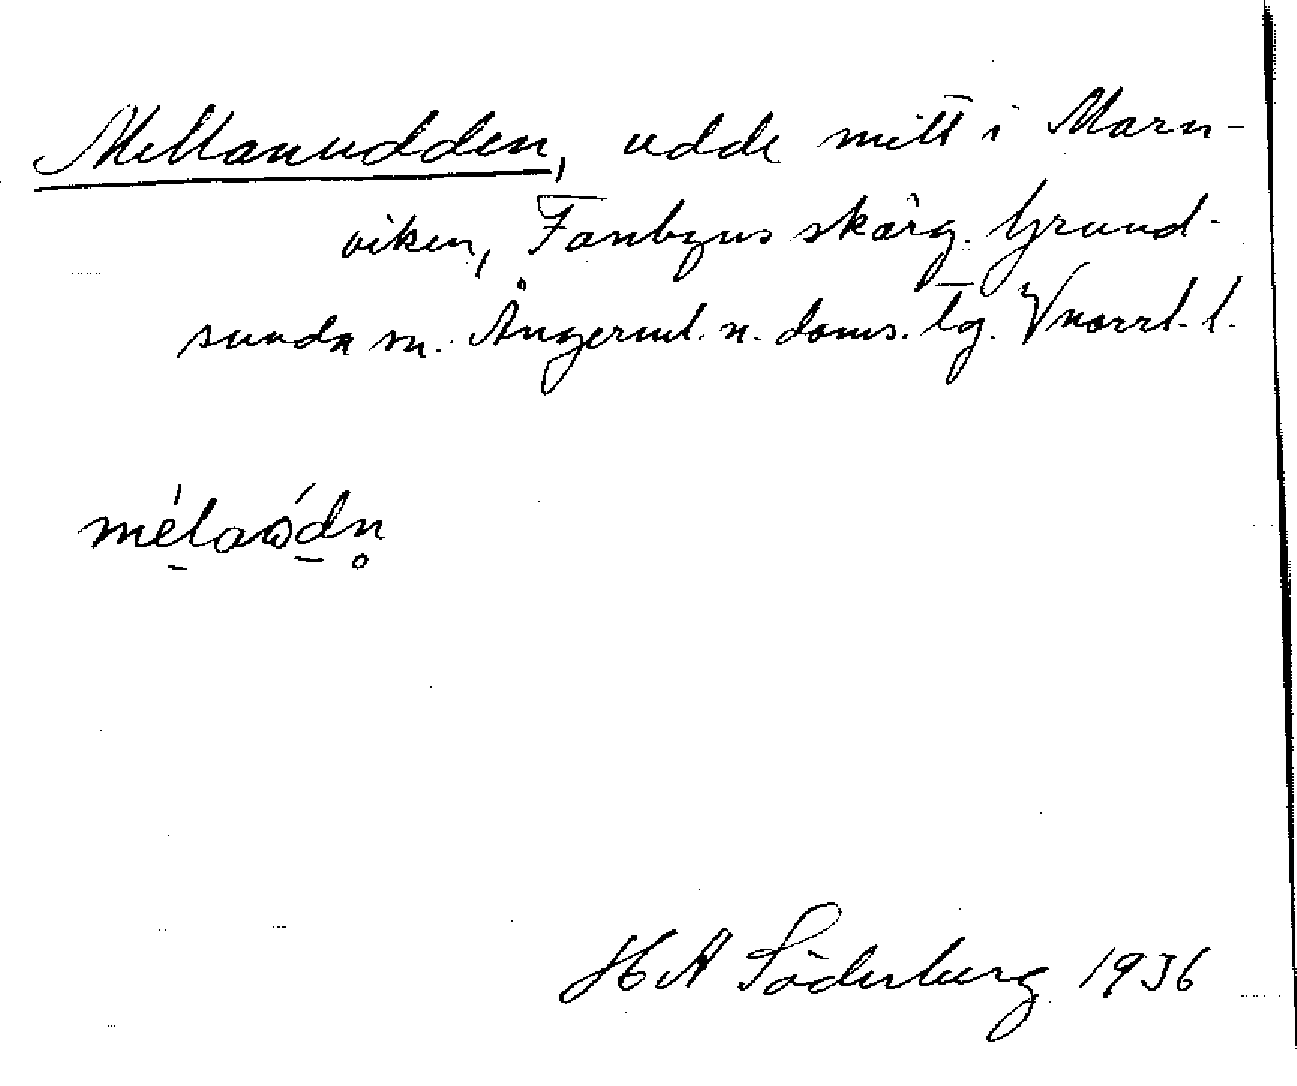 Mellanudden, udde mitt i Marn-
viken, Fanbyns skärg. Grund-
sunda sn. Ångerml. n. doms. tg. Vnorrl. l.
mélaὼdn̥
H A Söderberg 1936